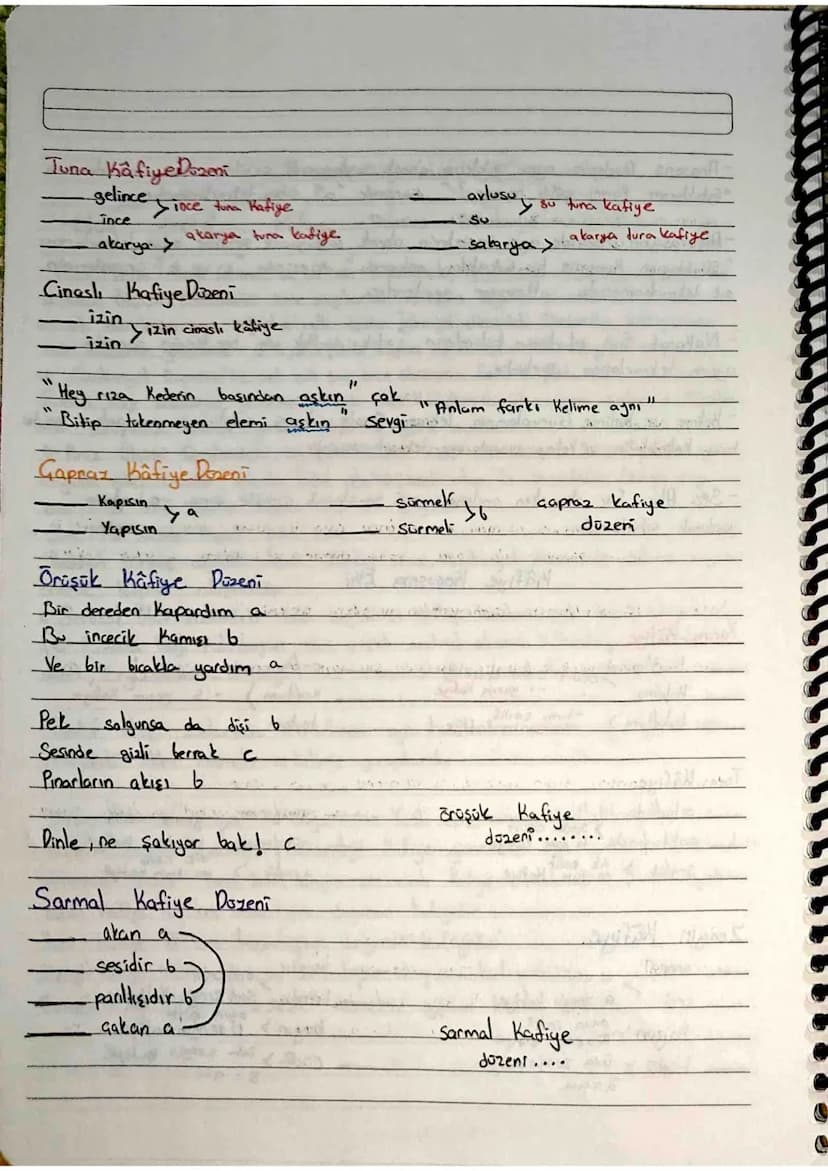 Tuna Kâfiye Düzeni
gelince
ince
> ince tuna kafiye
akarya > akarya tuna kafiye
avlusu
su
> su tuna kafiye
sakarya > akarya tura kafiye
Cinaslı Kafiye Düzeni
izin
izin
> izin cinaslı kâfiye
"Hey rıza Kederin başından aşkın" çok
"Bitip tükenmeyen elemi aşkın" sevgi
"Anlam farkı Kelime aynı"
Çapraz Kâfiye Düzeni
Kapısın
Yapısın
> a
sürmeli
sürmeli
> b
çapraz kafiye
düzeni
Örüşük Kâfiye Düzeni
Bir dereden Kapardım a
Bu incecik Kamışı b
Ve bir bıcakla yardım a
Pek solgunsa da dişi b
Sesinde gizli berrak c
Pınarların akışı b
Dinle, ne şakıyor bak! c
örüşük Kafiye
düzeni........
Sarmal Kafiye Düzeni
akan a
sesidir b
parıltışıdır b
çakan a
sarmal Kafiye
düzeni....